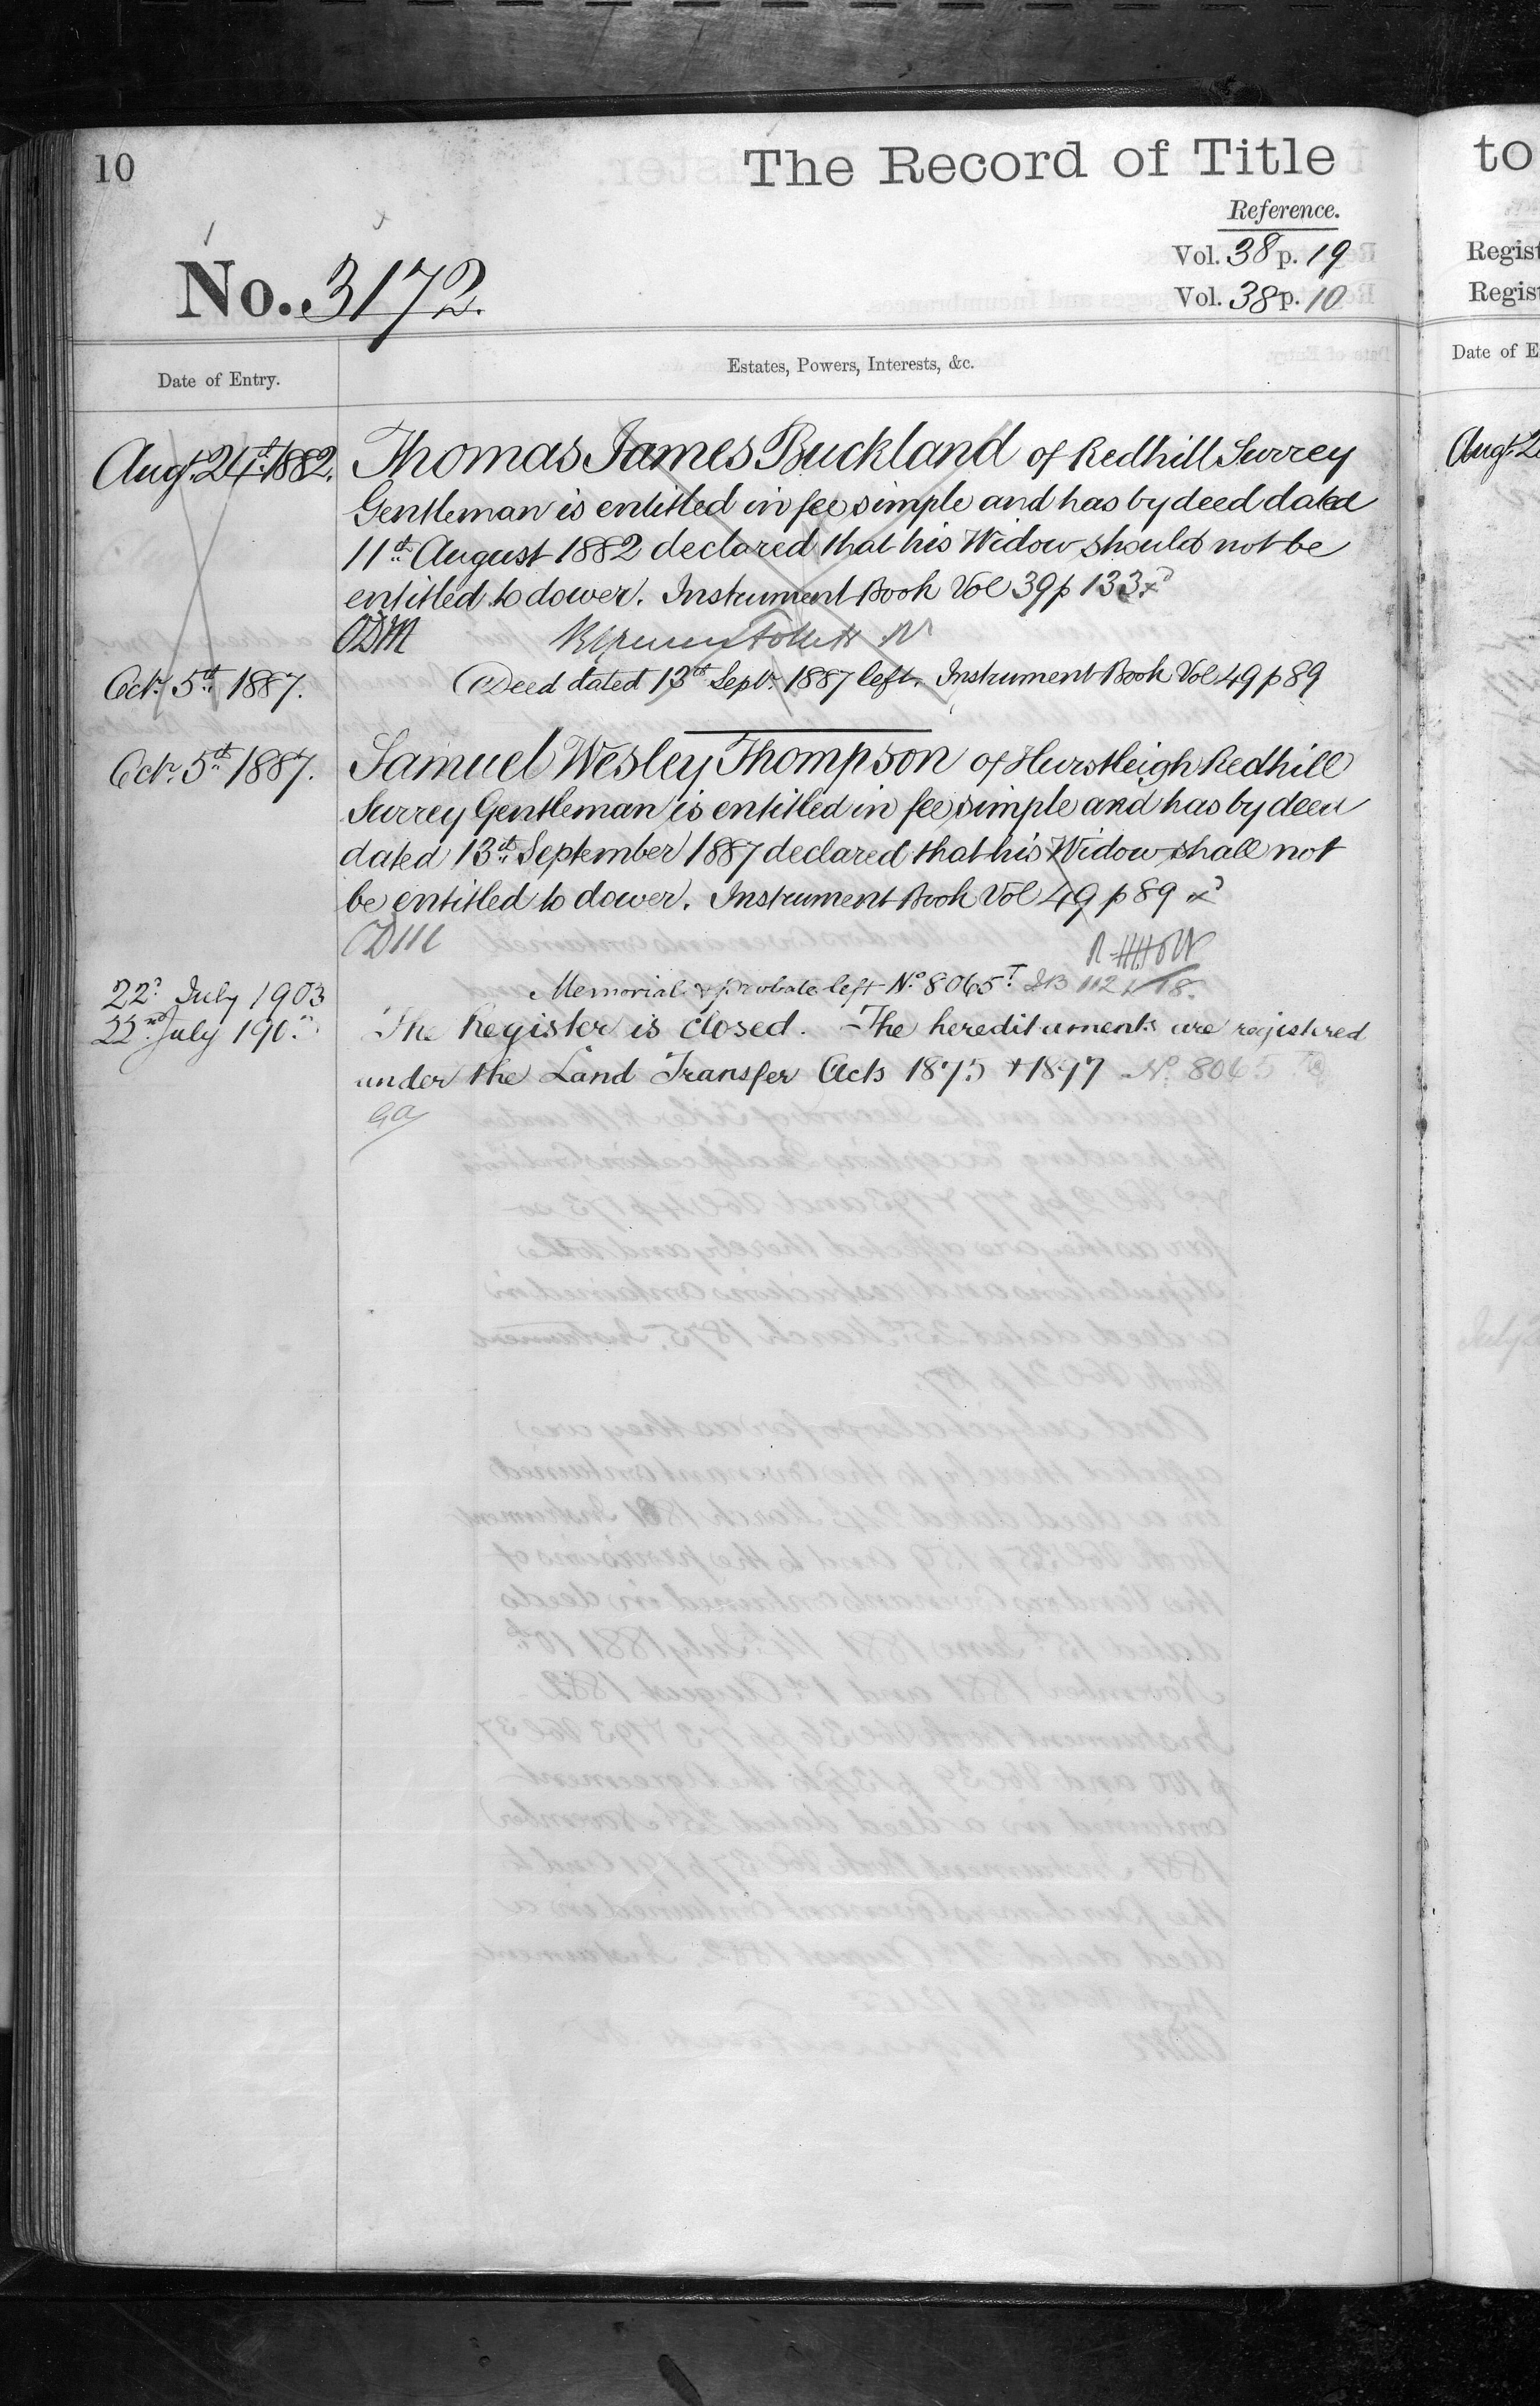 10
The Record of Title
Reference.
Vol. 38 p. 19
Vol. 38 p. 10
No. 3172.
Date of Entry.
Estates, Powers, Interests, &c.
Augt. 24th 1882. Thomas James Buckland of Redhill Surrey
Gentleman is entitled in fee simple and has by deed dated
11th August 1882 declared that his Widow should not be
entitled to dower. Instrument Book Vol 39 p 133
ODM
Octr. 5th 1887. Deed dated 13th Septr. 1887 left. Instrument Book Vol 49 p 89
Octr. 5th 1887. Samuel Wesley Thompson of Hurstleigh Redhill
Surrey Gentleman is entitled in fee simple and has by deed
dated 13th September 1887 declared that his Widow shall not
be entitled to dower. Instrument Book Vol 49 p 89
22d July 1903 Memorial & probate left No. 8065
22nd July 190 The Register is closed. The hereditaments are registered
under the Land Transfer Acts 1875 + 1897 No. 8065
to
Regist
Regist
Date of E
Augt. 2